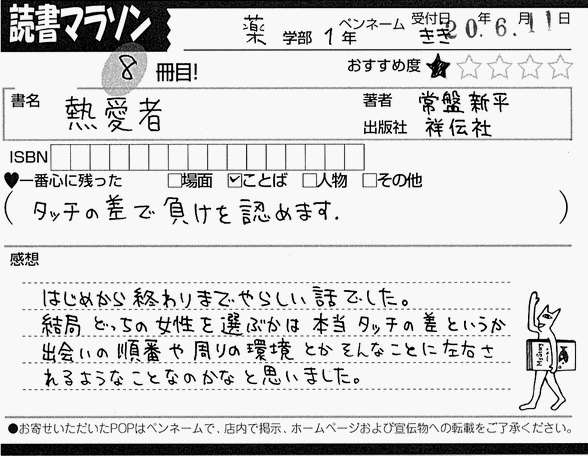 読書マラソン
薬 学部 1年 ペンネーム きき 受付日 20年6.月11日
8 冊目! おすすめ度 ★☆☆☆☆
書名 熱愛者 著者 常盤新平
出版社 祥伝社
ISBN
♥一番心に残った □場面 ☑ことば □人物 □その他
(タッチの差で負けを認めます.)
感想
はじめから終わりまでやらしい話でした。
結局どっちの女性を選ぶかは本当タッチの差というか
出会いの順番や周りの環境とかそんなことに左右さ
れるようなことなのかなと思いました。
●お寄せいただいたPOPはペンネームで、店内で掲示、ホームページおよび宣伝物への転載をご了承ください。